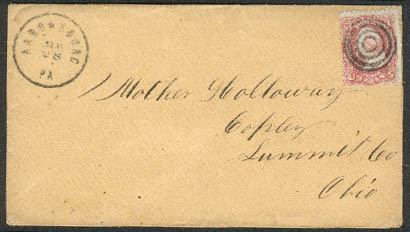 PA
Mother Holloway
Copley
Summit Co
Ohio